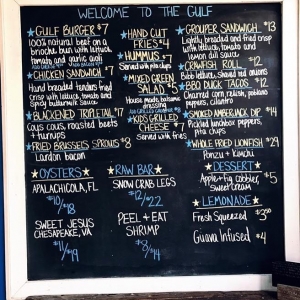 WELCOME TO THE GULF
GULF BURGER $7
100% natural beef on a
brioche bun with lettuce,
tomato and garlic aioli
CHICKEN SANDWICH $7
Hand breaded tenders fried
crisp with lettuce, tomato and
Spicy buttermilk sauce
BLACKENED TRIPLETAIL $17
Cous cous, roasted beets
+ turnups
FRIED BRUSSELS SPROUTS $8
Lardon bacon
HAND CUT
FRIES $4
HUMMUS $7
Served with pita chips
MIXED GREEN
SALAD $5
House made, balsamic
dressing
KIDS GRILLED
CHEESE $7
Served with fries
GROUPER SANDWICH $13
Lightly breaded and fried crisp
with lettuce, tomato and
lemon dill sauce
CRAWFISH ROLL $12
Bibb lettuce, shaved red onions
BBQ DUCK TACOS $12
Charred corn relish, poblano
peppers, cilantro
SMOKED AMBERJACK DIP $14
Pickled lunchbox peppers,
pita chips
WHOLE FRIED LIONFISH $29
Ponzu + Kimchi
OYSTERS
APALACHICOLA, FL
$10/$18
SWEET JESUS
CHESAPEAKE, VA
$11/$19
RAW BAR
SNOW CRAB LEGS
$12/$22
PEEL + EAT
SHRIMP
$8/$14
DESSERT
Apple + fig cobbler, $5
Sweet cream
LEMONADE
Fresh Squeezed $3.50
Guava Infused $4